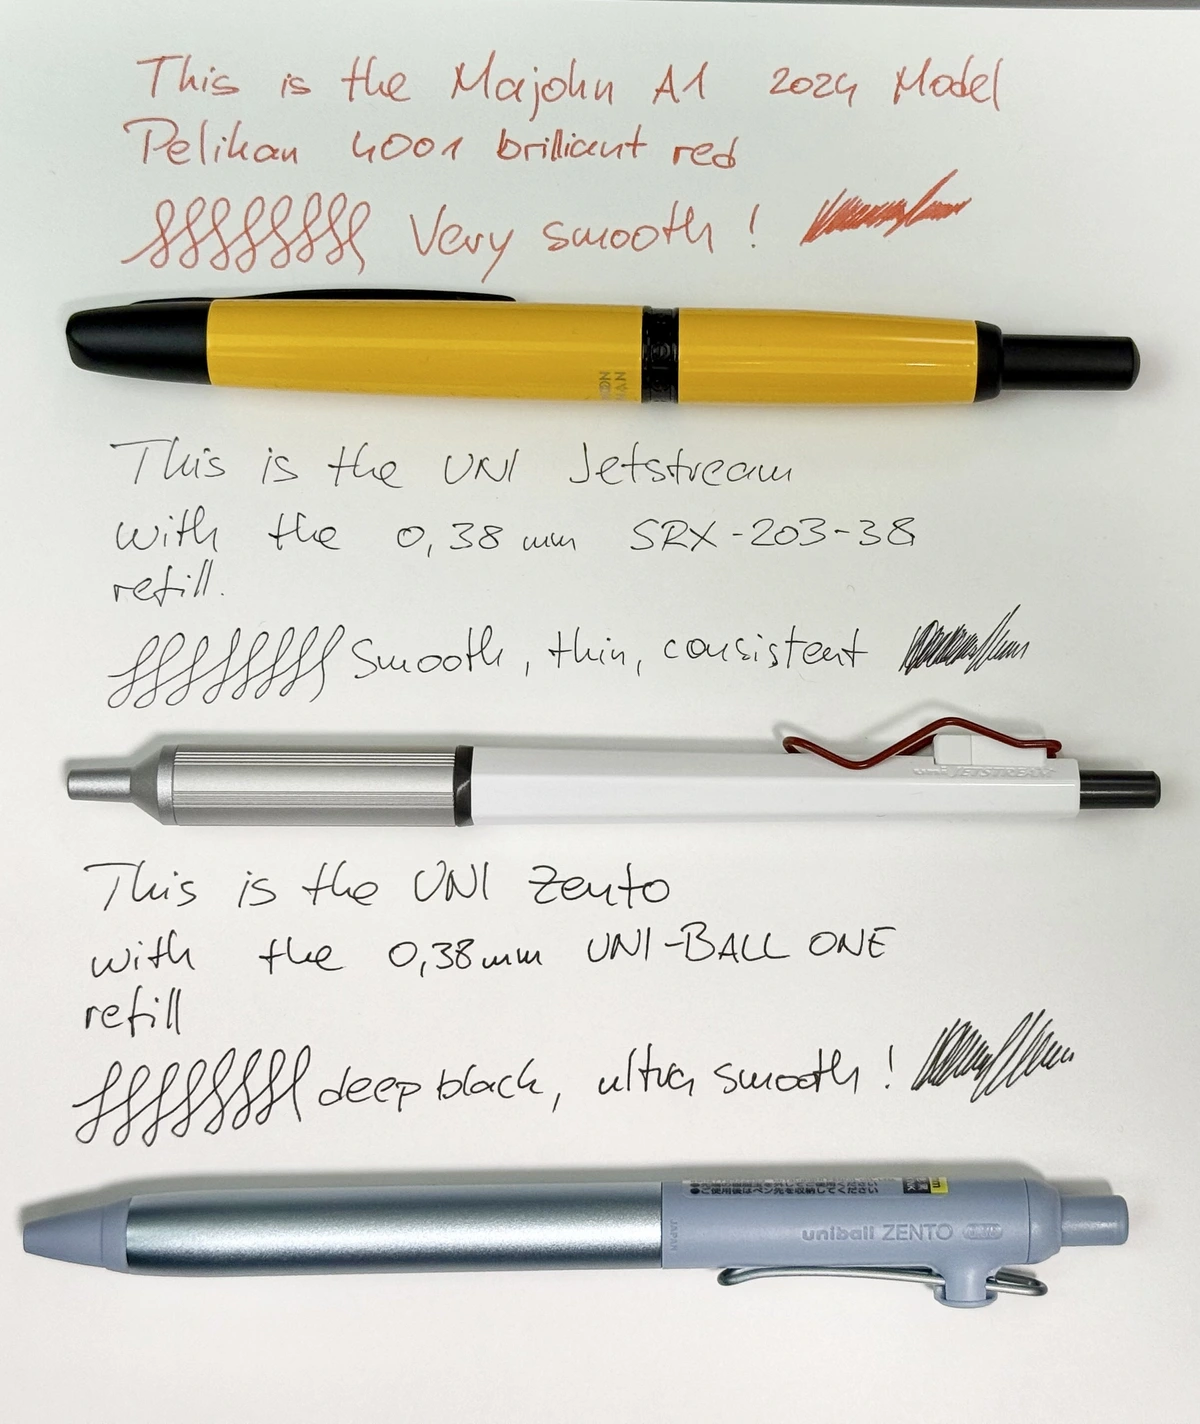 This is the Majohn A1 2024 Model
Pelikan 4001 brilliant red
Very smooth !
This is the UNI Jetstream
with the 0,38 mm SRX-203-38
refill.
Smooth, thin, consistent
uni JETSTREAM
This is the UNI Zento
with the 0,38mm UNI-BALL ONE
refill
deep black, ultra smooth !
JAPAN
uniball ZENTO